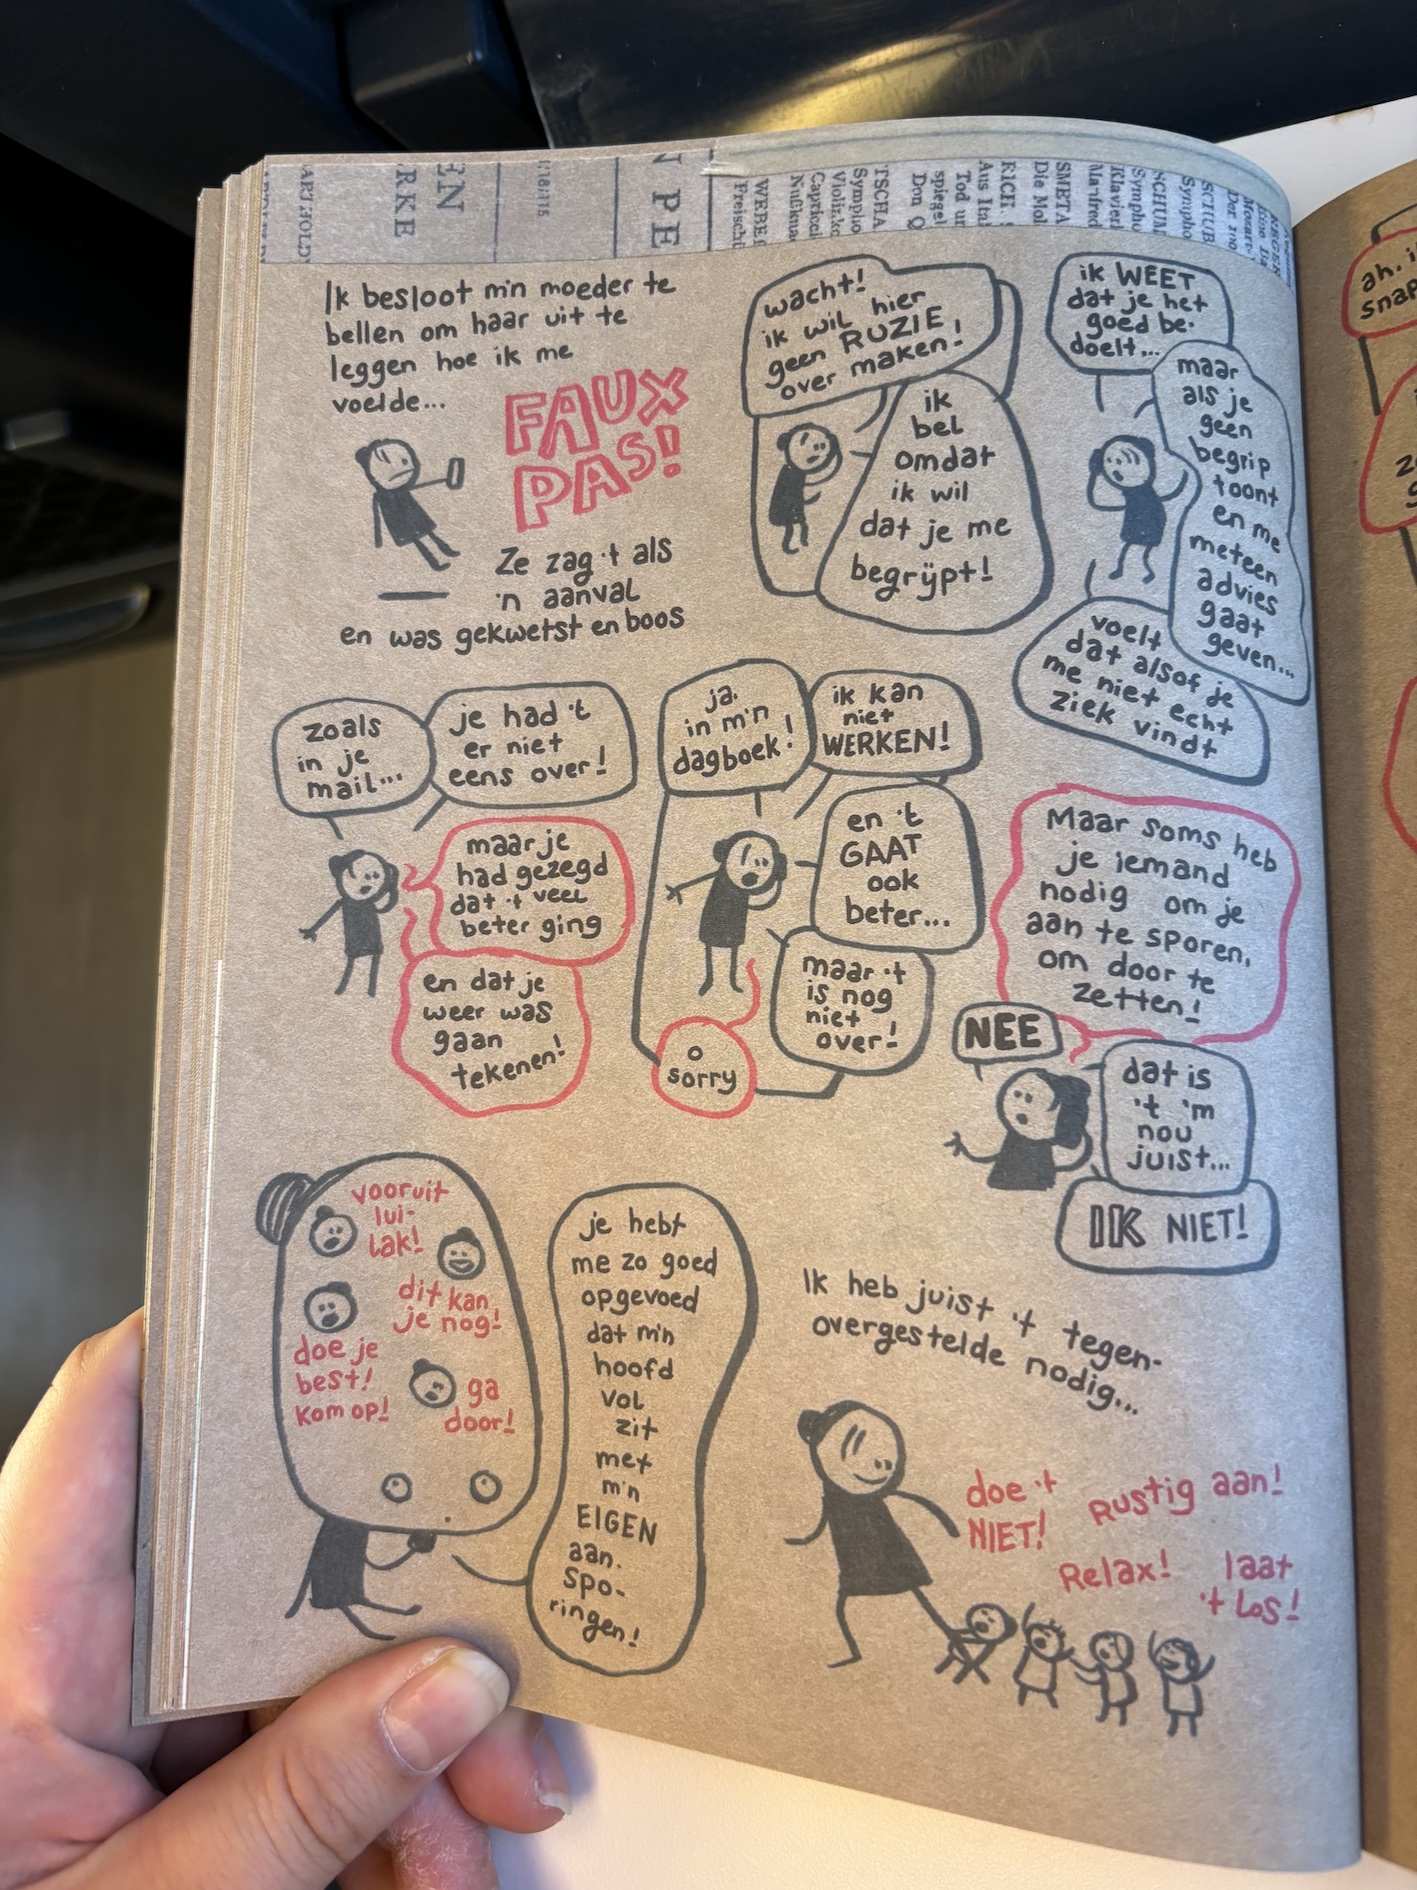 EN
RKE
N PE
WEBE
Freisch
TSCHA
Sympho
Violinko
Capricci
Nußkna
RICH.
Aus Ital
Tod un
spiegel
Don Q
SMETA
Die Mol
SCHUM
Sympho
Klavier
Manfred
SCHUB
Sympho
Ik besloot m'n moeder te
bellen om haar uit te
leggen hoe ik me
voelde...
FAUX
PAS!
Ze zag 't als
'n aanval
en was gekwetst en boos
wacht!
ik wil hier
geen RUZIE
over maken!
ik
bel
omdat
ik wil
dat je me
begrijpt!
ik WEET
dat je het
goed be-
doelt...
maar
als je
geen
begrip
toont
en me
meteen
advies
gaat
geven...
voelt
dat alsof je
me niet echt
ziek vindt
zoals
in je
mail...
je had 't
er niet
eens over!
maar je
had gezegd
dat 't veel
beter ging
en dat je
weer was
gaan
tekenen!
ja.
in m'n
dagboek!
ik kan
niet
WERKEN!
en 't
GAAT
ook
beter...
maar 't
is nog
niet
over!
o
sorry
Maar soms heb
je iemand
nodig om je
aan te sporen,
om door te
zetten!
NEE
dat is
't 'm
nou
juist...
IK NIET!
vooruit
lui-
lak!
dit kan
je nog!
doe je
best!
kom op!
ga
door!
je hebt
me zo goed
opgevoed
dat m'n
hoofd
vol
zit
met
m'n
EIGEN
aan-
spo-
ringen!
Ik heb juist 't tegen-
overgestelde nodig...
doe 't
NIET!
Rustig aan!
Relax!
laat
't los!
ah. i
snap